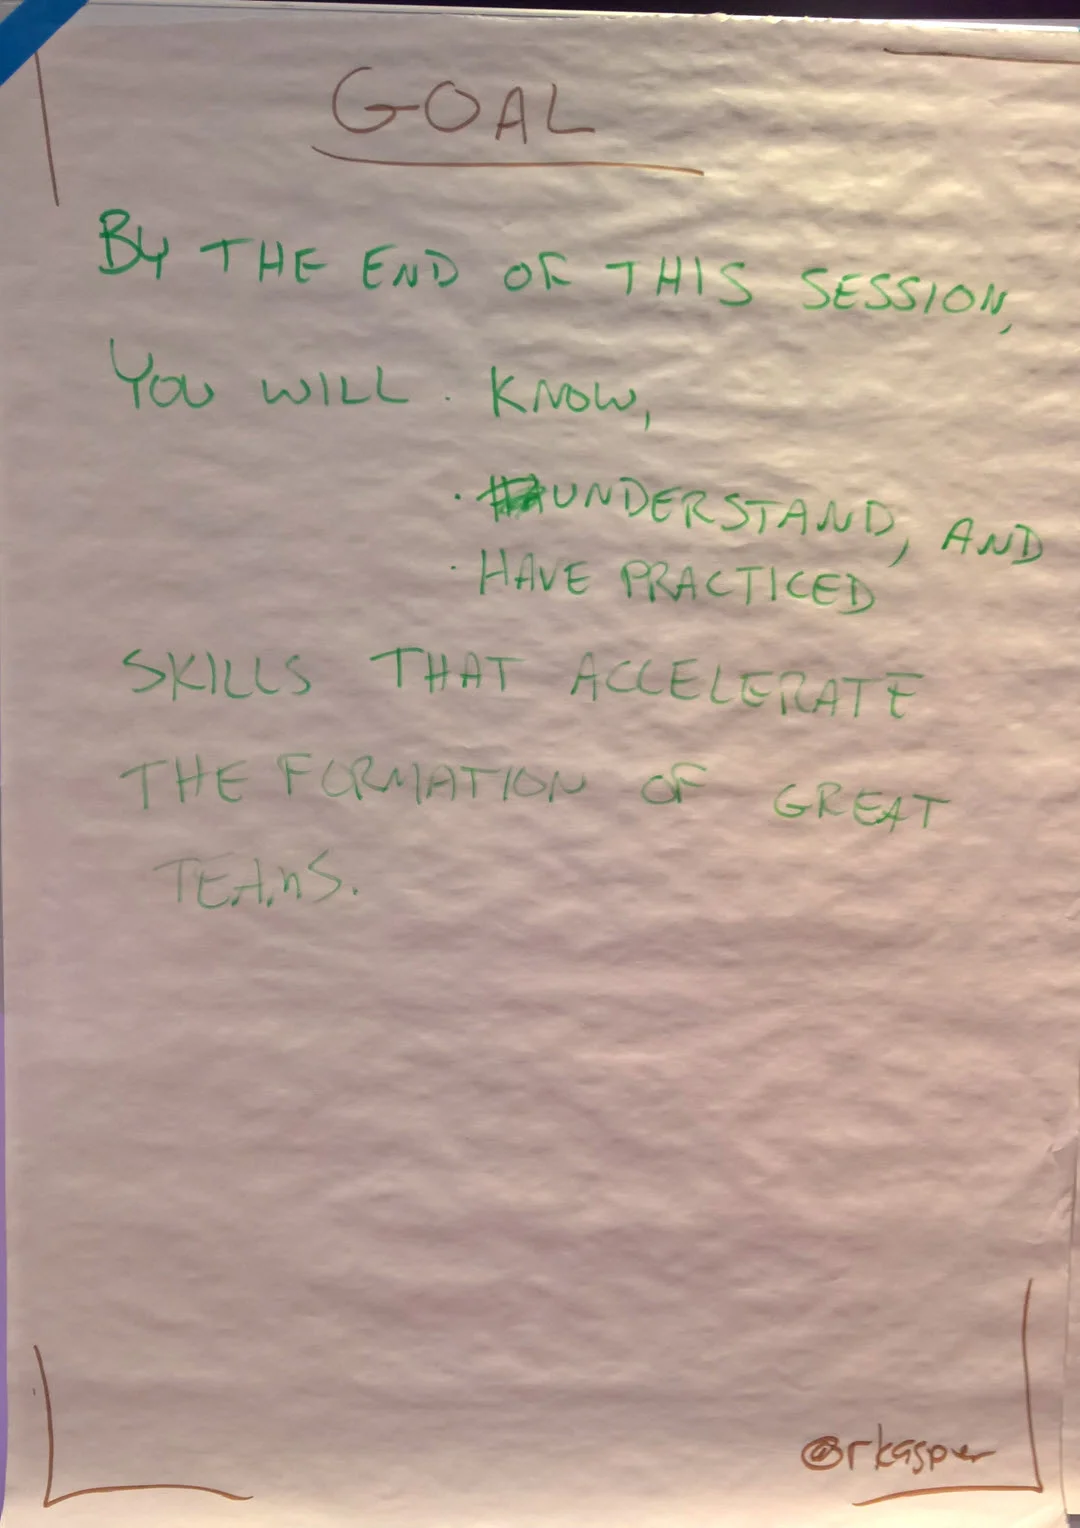 GOAL
BY THE END OF THIS SESSION,
YOU WILL · KNOW,
· UNDERSTAND, AND
· HAVE PRACTICED
SKILLS THAT ACCELERATE
THE FORMATION OF GREAT
TEAMS.
@rkasper